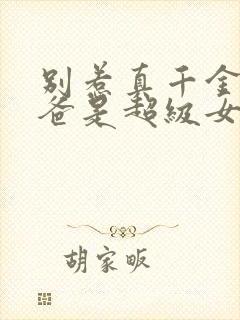 别惹真千金
爸是超级女
胡家畈